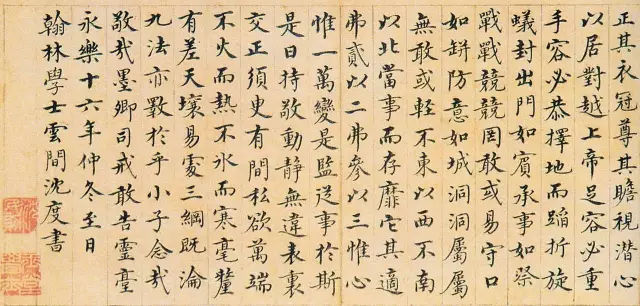 正其衣冠尊其瞻視潜心
以居對越上帝足容必重
手容必恭擇地而蹈折旋
蟻封出門如賓承事如祭
戰戰兢兢罔敢或易守口
如缾防意如城洞洞屬屬
無敢或輕不東以西不南
以北當事而存靡它其適
弗貳以二弗參以三惟心
惟一萬變是監從事於斯
是曰持敬動靜無違表裏
交正須臾有間私欲萬端
不火而熱不氷而寒毫釐
有差天壤易處三綱既淪
九法亦斁於乎小子念哉
敬哉墨卿司戒敢告靈臺
永樂十六年仲冬至日
翰林學士雲間沈度書